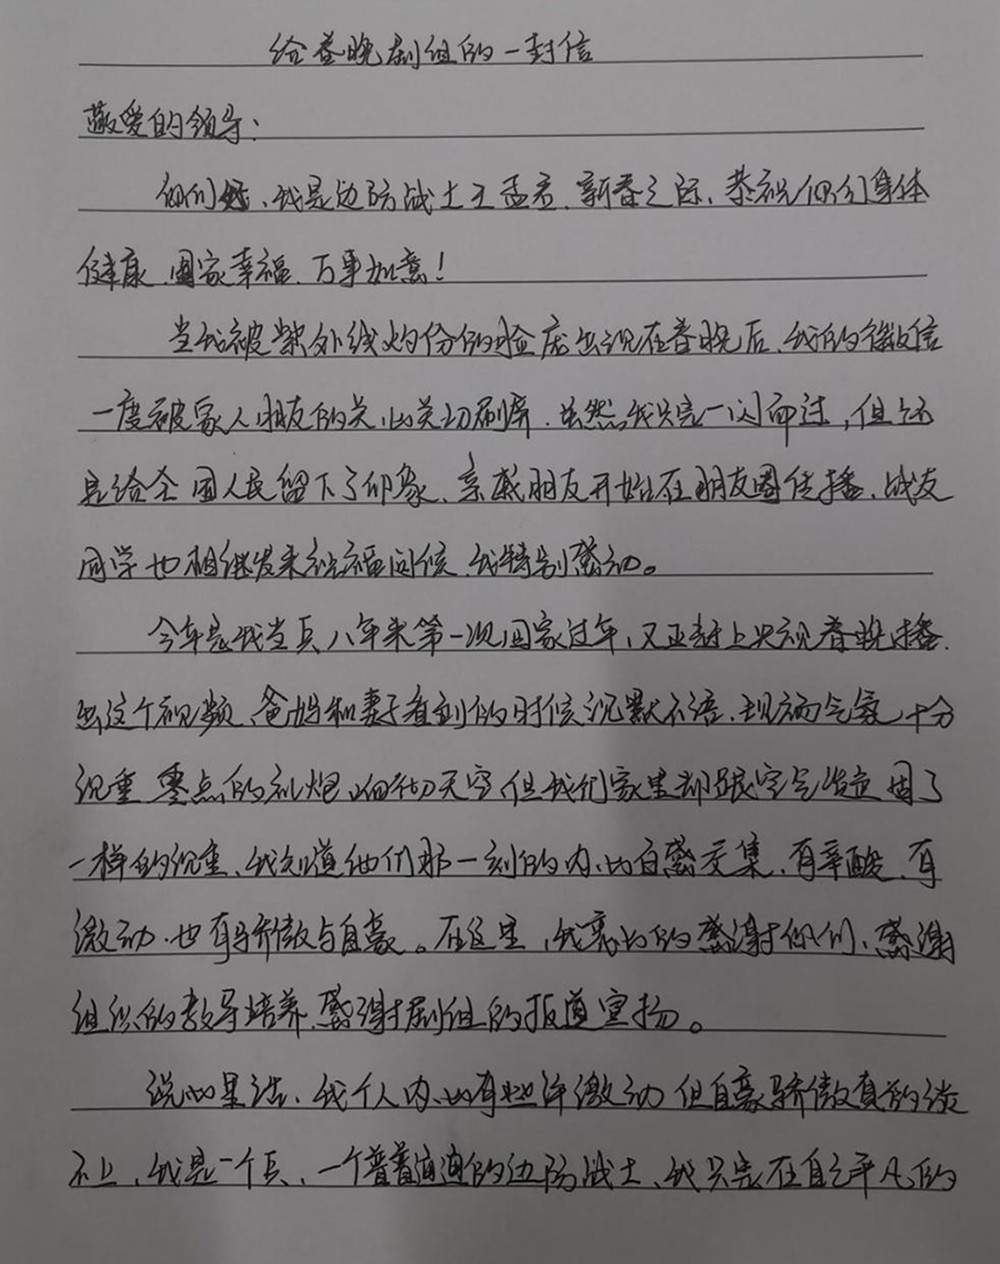 给春晚剧组的一封信
敬爱的领导：
你们好、我是边防战士王孟君、新春之际、恭祝你们身体
健康、国家幸福、万事如意！
当我被紫外线灼伤的脸庞出现在春晚后、我的微信
一度被家人朋友的关心关切刷屏、虽然我只是一闪而过，但还
是给全国人民留下了印象、亲戚朋友开始在朋友圈传播、战友
同学也相继发来祝福问候、我特别感动。
今年是我当兵八年来第一次回家过年、又正赶上央视春晚播
出这个视频、爸妈和妻子看到的时候沉默不语、现场气氛十分
沉重、零点的礼炮响彻天空但我们家里却跟空气凝固了
一样的沉重、我知道他们那一刻的内心百感交集、有辛酸、有
激动、也有骄傲与自豪。在这里，我衷心的感谢你们、感谢
组织的教导培养、感谢剧组的报道宣扬。
说心里话、我个人内心有些许激动但自豪骄傲真的谈
不上、我是一个兵、一个普普通通的边防战士、我只是在自己平凡的